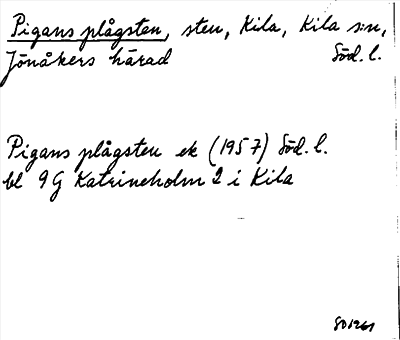 Pigans plågsten, sten, Kila, Kila sn,
Jönåkers härad Söd. l.
Pigans plågsten ek (1957) Söd. l.
bl 9G Katrineholm 2 i Kila